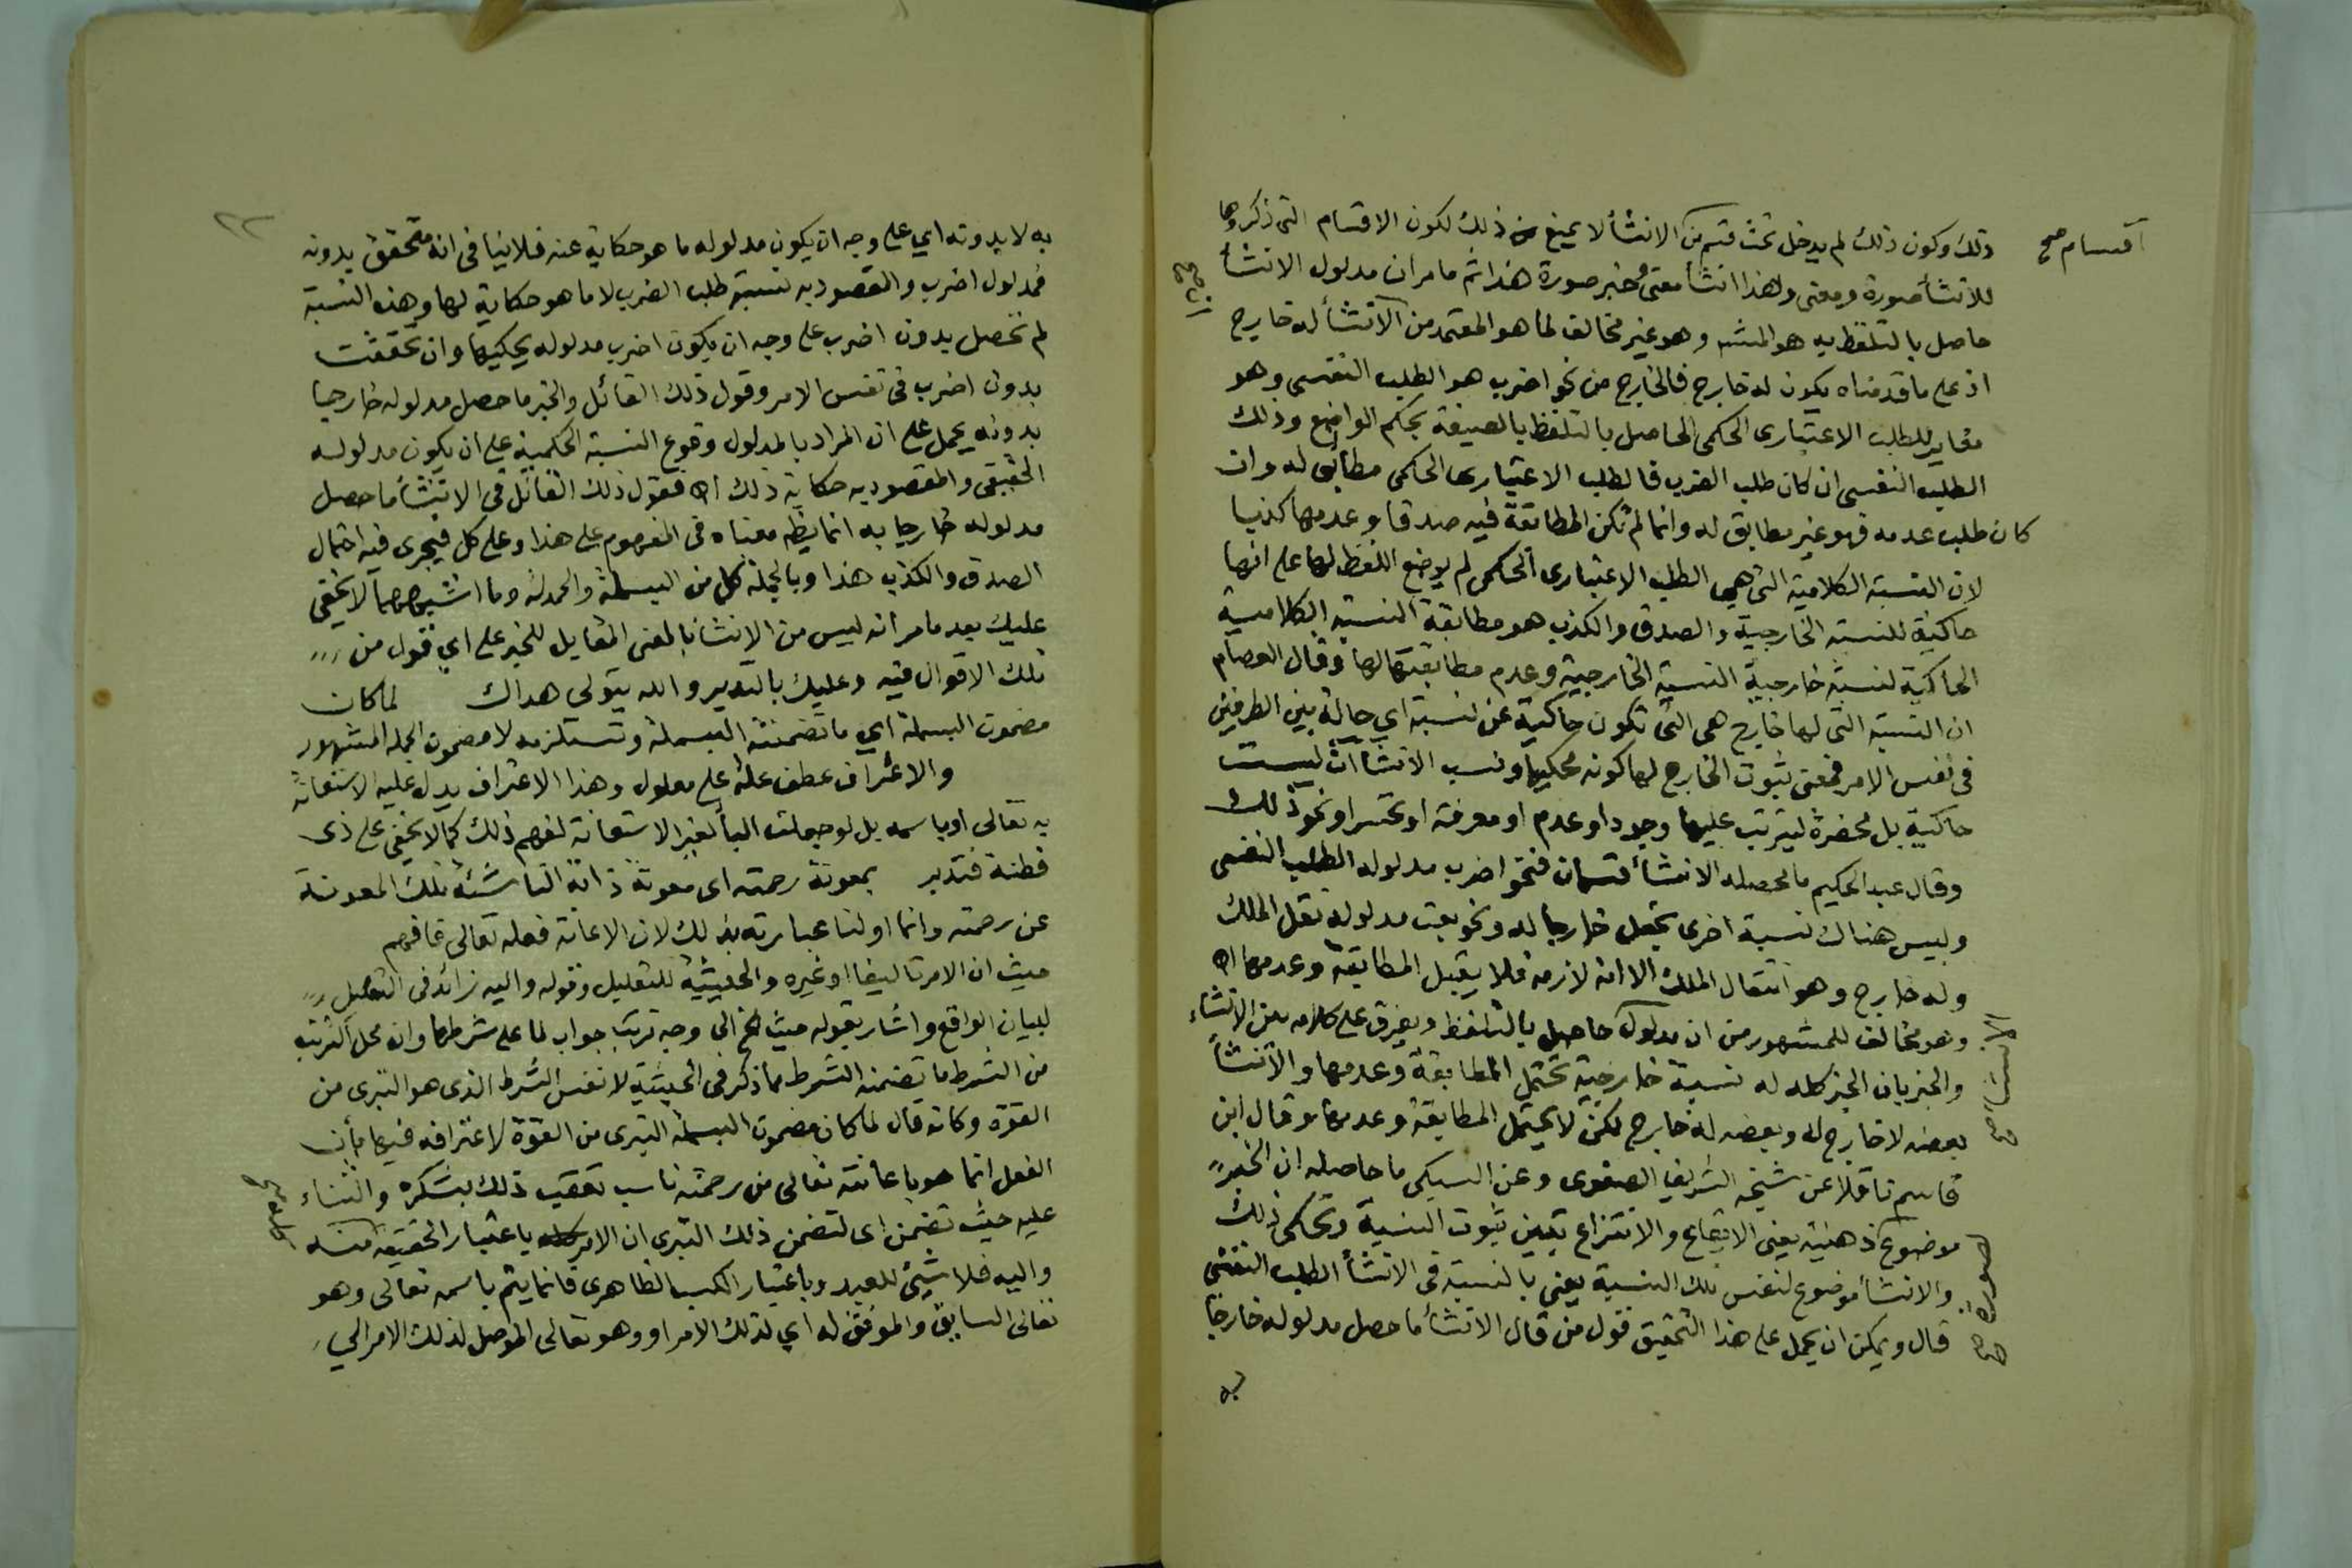 ذلك وكون ذلك لم يدخل تحت قسم من الانشأ لا يمنع من ذلك لكون الاقسام التى ذكروها
اقسام صح
للانشأ صورة ومعنى ولهذا انشأ معنى خبر صورة هذا ثم ما مر ان مدلول الانشأ
حاصل بالتلفظ به هو المشهور وهو غير مخالف لما هو المعتمد من ان الانشأ له خارج
اذ على ما قدمناه يكون له خارج فالخارج من نحو اضرب هو الطلب النفسى وهو
مغاير للطلب الاعتبارى الحكمى الحاصل بالتلفظ بالصيغة بحكم الواضع وذلك
الطلب النفسى ان كان طلب الضرب فالطلب الاعتبارى الحكمى مطابق له وان
كان طلب عدمه فهو غير مطابق له وانما لم تكن المطابقة فيه صدقا وعدمها كذبا
لان النسبة الكلامية التى هى الطلب الاعتبارى الحكمى لم يوضع اللفظ لها على انها
حاكية للنسبة الخارجية والصدق والكذب هو مطابقة النسبة الكلامية
الحاكية لنسبة خارجية النسبة الخارجية وعدم مطابقتها لها وقال العصام
ان النسبة التى لها خارج هى التى تكون حاكية عن نسبة اي حالة بين الطرفين
فى نفس الامر فمعنى ثبوت الخارج لها كونه محكيا ونسب الانشاآت ليست
حاكية بل محضرة ليترتب عليها وجود او عدم او معرفة او تحسر او نحو ذلك
وقال عبد الحكيم ما محصله الانشأ قسمان فنحو اضرب مدلوله الطلب النفسى
وليس هناك نسبة اخرى تجعل خارجا له ونحو بعت مدلوله نقل الملك
وله خارج وهو انتقال الملك الا انه لازمه فلا يقبل المطابقة وعدمها اه
وهو مخالف للمشهور من ان مدلول حاصل بالتلفظ ويفرق على كلامه بين الانشاء
الانشأ صح
والخبر بان الخبر كله له نسبة خارجية تحتمل المطابقة وعدمها والانشأ
بعضه لا خارج له وبعضه له خارج لكن لا يحتمل المطابقة وعدمها وقال ابن
قاسم ناقلا عن شيخه الشريف الصفوى وعن السبكى ما حاصله ان الخبر
موضوع ذهنية يعنى الايقاع والانتزاع تعين ثبوت النسبة وتحكى ذلك
لصورة صح
والانشأ موضوع لنفس تلك النسبة يعنى بالنسبة فى الانشأ الطلب النفسى
قال ويمكن ان يحمل على هذا التحقيق قول من قال الانشأ ما حصل مدلوله خارجا
به
به لا بدونه اي على وجه ان يكون مدلوله ما هو حكاية عنه فلا ينافى انه متحقق بدونه
فمدلول اضرب والمقصود به نسبة طلب الضرب لا ما هو حكاية لها وهذه النسبة
لم تحصل بدون اضرب على وجه ان يكون اضرب مدلوله يحكيها وان تحققت
بدون اضرب فى نفس الامر وقول ذلك القائل والخبر ما حصل مدلوله خارجا
بدونه يحمل على ان المراد بالمدلول وقوع النسبة الحكمية على ان يكون مدلوله
الحقيقى والمقصود به حكاية ذلك اه فقول ذلك القائل فى الانشأ ما حصل
مدلوله خارجا به انما يظهر معناه فى المفهوم على هذا وعلى كل فيجرى فيه احتمال
الصدق والكذب هذا وبالجملة كل من البسملة والحمدلة وما اشبههما لا يخفى
عليك بعد ما مر انه ليس من الانشأ بالمعنى المقابل للخبر على اي قول من
تلك الاقوال فيه وعليك بالتدبر والله يتولى هداك لما كان
مضمون البسملة اي ما تضمنته البسملة وتستلزمه لا مضمون الجملة المشهور
والاعتراف عطف علة على معلول وهذا الاعتراف يدل عليه الاستعانة
به تعالى او باسمه بل لو جعلت البأ لغير الاستعانة لفهم ذلك كما لا يخفى على ذى
فطنة فتدبر بمعونة رحمته اى معونة ذاته الناشئة تلك المعونة
عن رحمته وانما اولنا عبارته بذلك لان الاعانة فعله تعالى فافهم
حيث ان الامر تاليفا او غيره والحيثية للتعليل وقوله واليه زائد فى التعليل
لبيان الواقع واشار بقوله حيث الخ الى وجه ترتب جواب لما على شرطها وان محل الترتب
من الشرط ما تضمنه الشرط مما ذكر فى الحيثية لا نفس الشرط الذى هو التبرى من
القوة وكانه قال لما كان مضمون البسملة التبرى من القوة لاعترافه فيها بأن
الفعل انما هو باعانته تعالى من رحمته ناسب تعقيب ذلك بشكره والثناء
عليه حيث تضمن اى لتضمن ذلك التبرى ان الامر كله باعتبار الحقيقة منه
واليه فلا شيئ للعبد وباعتبار الكسب الظاهرى فانما يتم باسمه تعالى وهو
تعالى السابق والموفق له اي لذلك الامر او وهو تعالى الموصل لذلك الامر الي